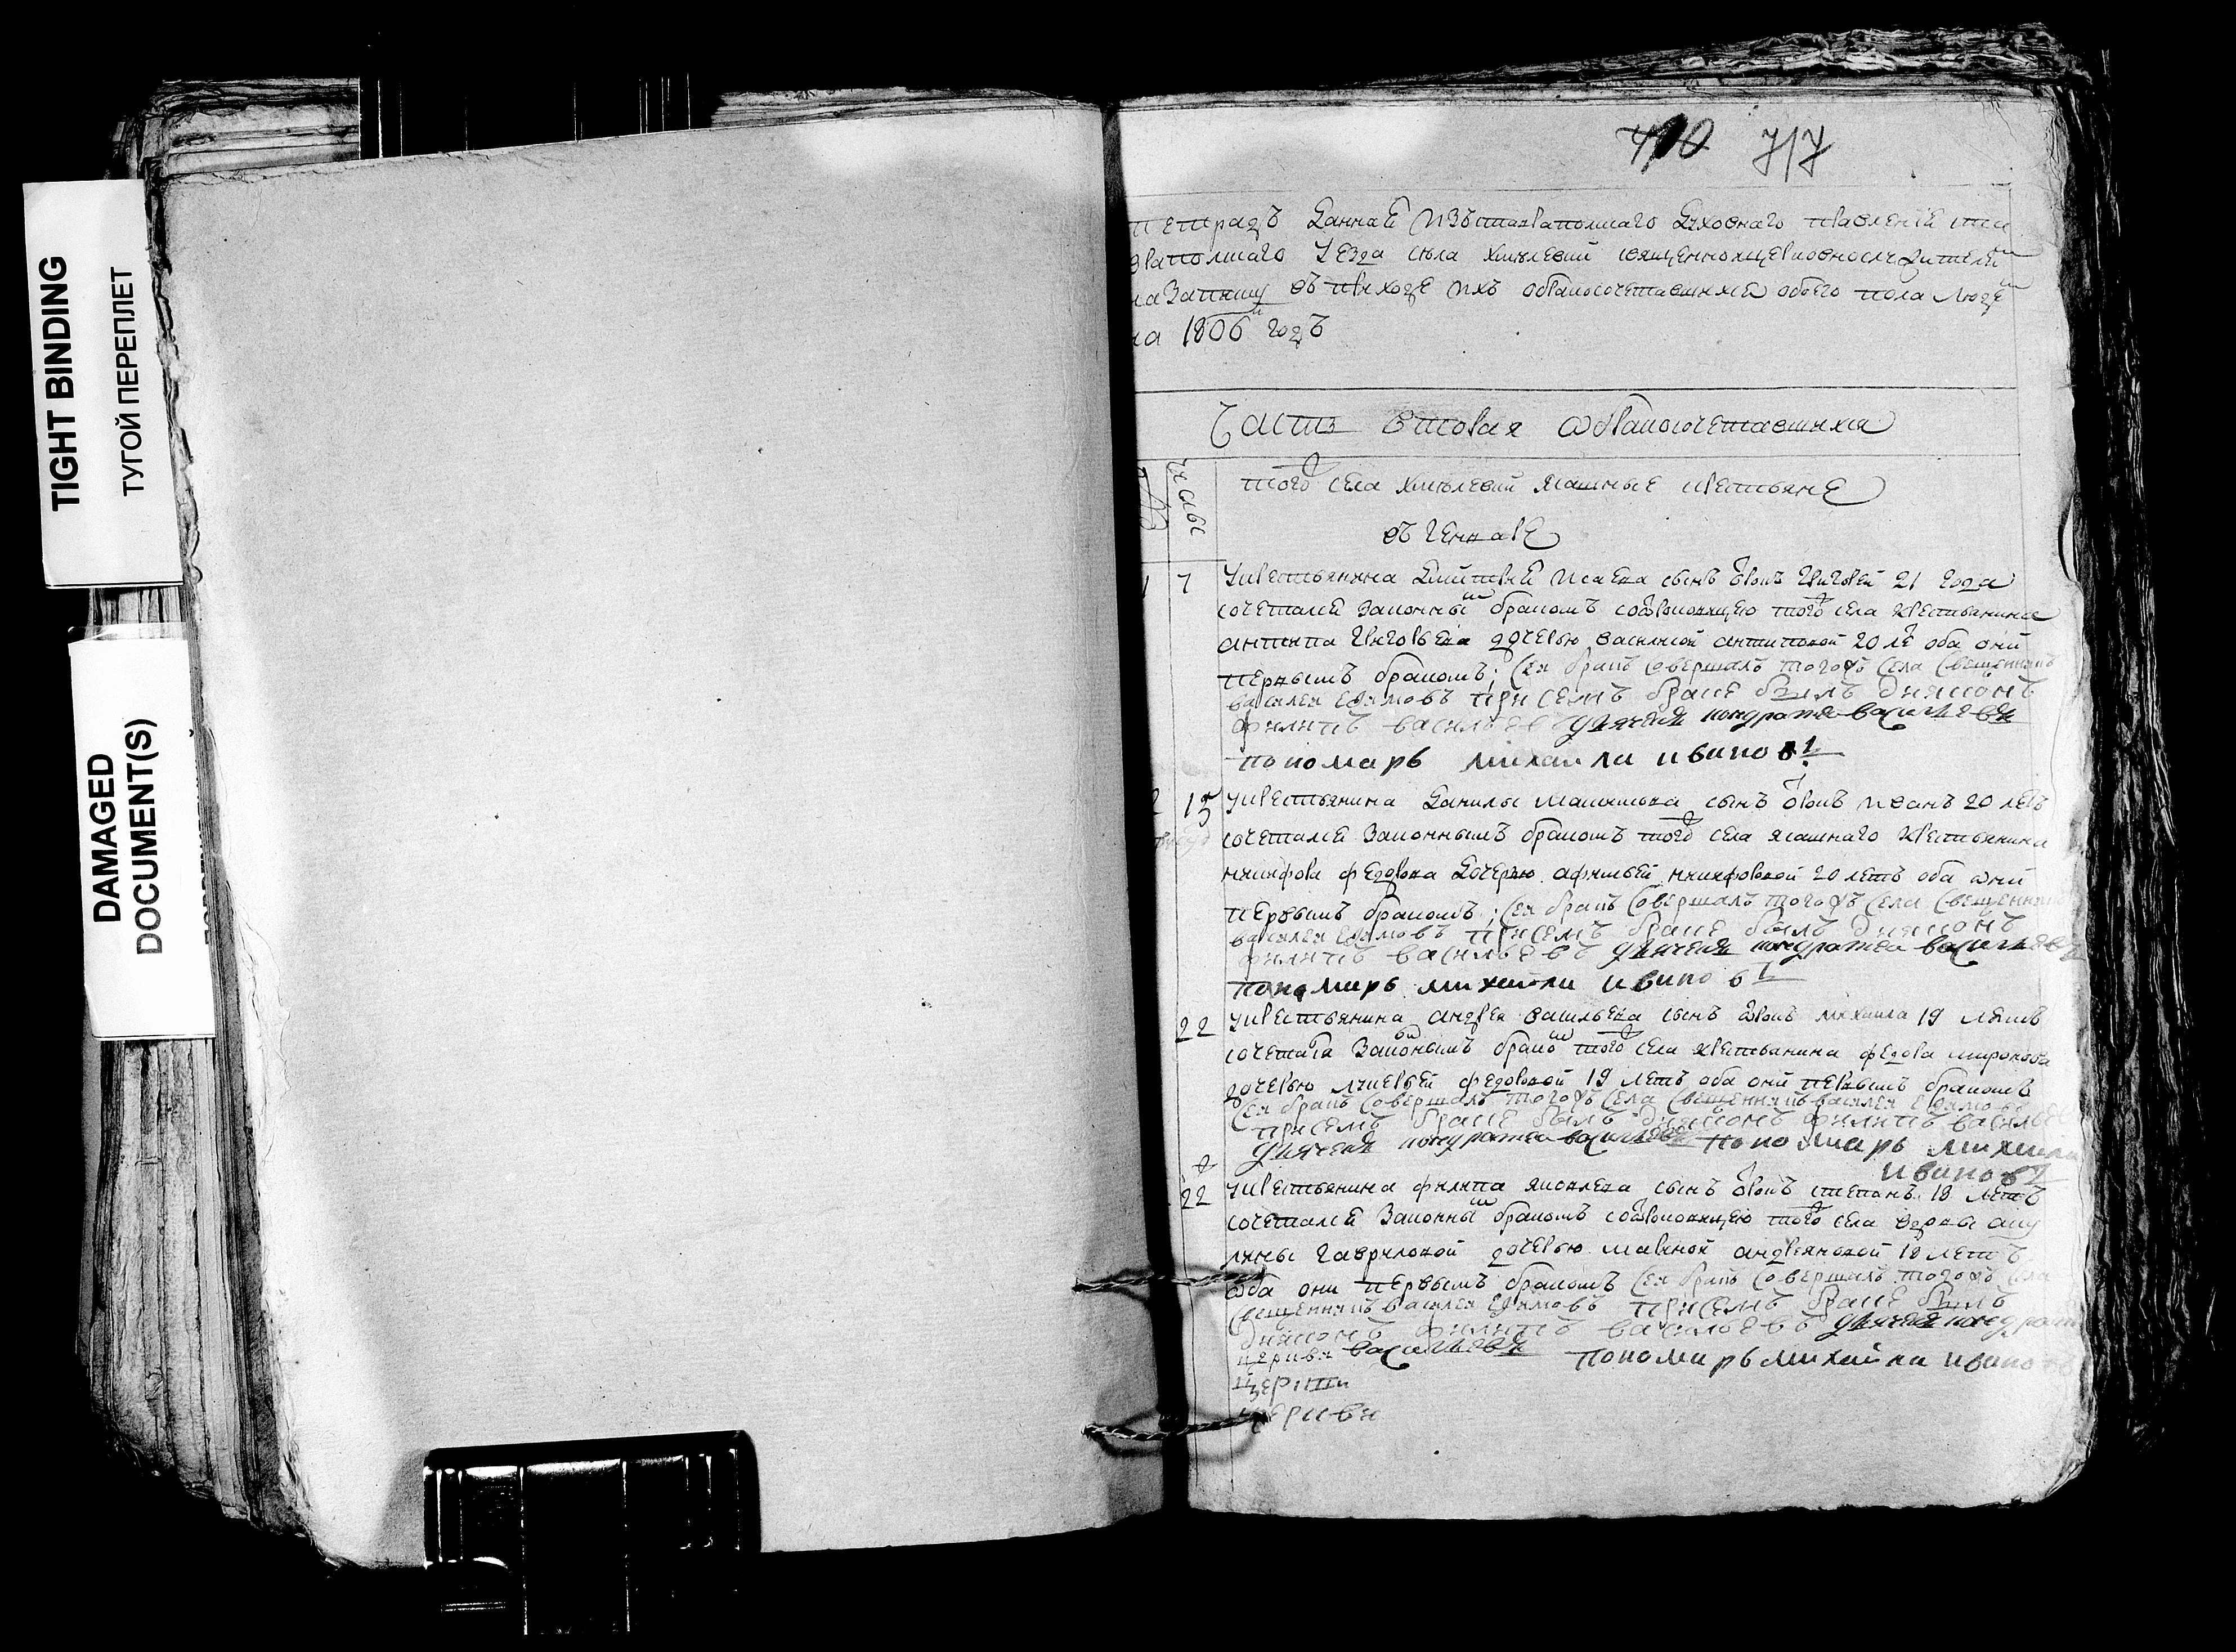 TIGHT BINDING
ТУГОЙ ПЕРЕПЛЕТ
DAMAGED
DOCUMENT(S)
717
тетрадь данная изъ ставрапольскаго духовнаго правления ста
врапольскаго уезда села хмелевки священноцерковнослужителей
на записку въ приходе ихъ обракосочетавшихся обоего пола людей
на 1806 годъ
Часть вторая обракосочетавшихся
числы
того села хмелевки ясашные крестьяне
въ генваре
1 7 у крестьянина дмитрея исаева сынъ отрокъ григорей 21 года
сочетался законным бракомъ с отроковицею того села крестьянина
антипа григорьева дочерью василисой антиповой 20 ле оба они
первымъ бракомъ; сея бракъ совершалъ тогожъ села священникъ
василеи ефимовъ при семъ браке былъ дияконъ
филипъ васильевъ дьячекъ кондратеи васильевъ
пономарь михаила иванов
2 15 у крестьянина данилы сынъ отрокъ иванъ 20 летъ
сочетался законнымъ бракомъ того села ясашнаго крестьянина
никифора федорова дочерью афимьей никифоровой 20 летъ оба они
первымъ бракомъ; сея бракъ совершалъ тогожъ села священникъ
василеи ефимовъ при семъ браке былъ дияконъ
филипъ васильевъ дьячекъ кондратеи васильевъ
пономарь михаила иванов
22 у крестьянина андрея васильева сынъ отрокъ михаила 19 летъ
законнымъ браком того села крестьянина федора миронова
дочерью лукерьей федоровой 19 летъ оба они первымъ бракомъ
сея бракъ совершалъ тогожъ села священникъ василеи ефимовъ
при семъ браке былъ дияконъ филипъ васильев
дьячекъ кондратеи васильевъ пономарь михаила
иванов
22 у крестьянина филипа яковлева сынъ отрокъ степанъ 18 летъ
сочетался законны бракомъ с отроковицею того села вдовы аку
лины гавриловой дочерью мариной андреяновой 18 летъ
оба они первымъ бракомъ сея бракъ совершалъ тогожъ села
священникъ василеи ефимовъ при семъ браке былъ
дияконъ филипъ васильевъ дьячекъ кондрат
васильевъ пономарь михаила иванов
церкви